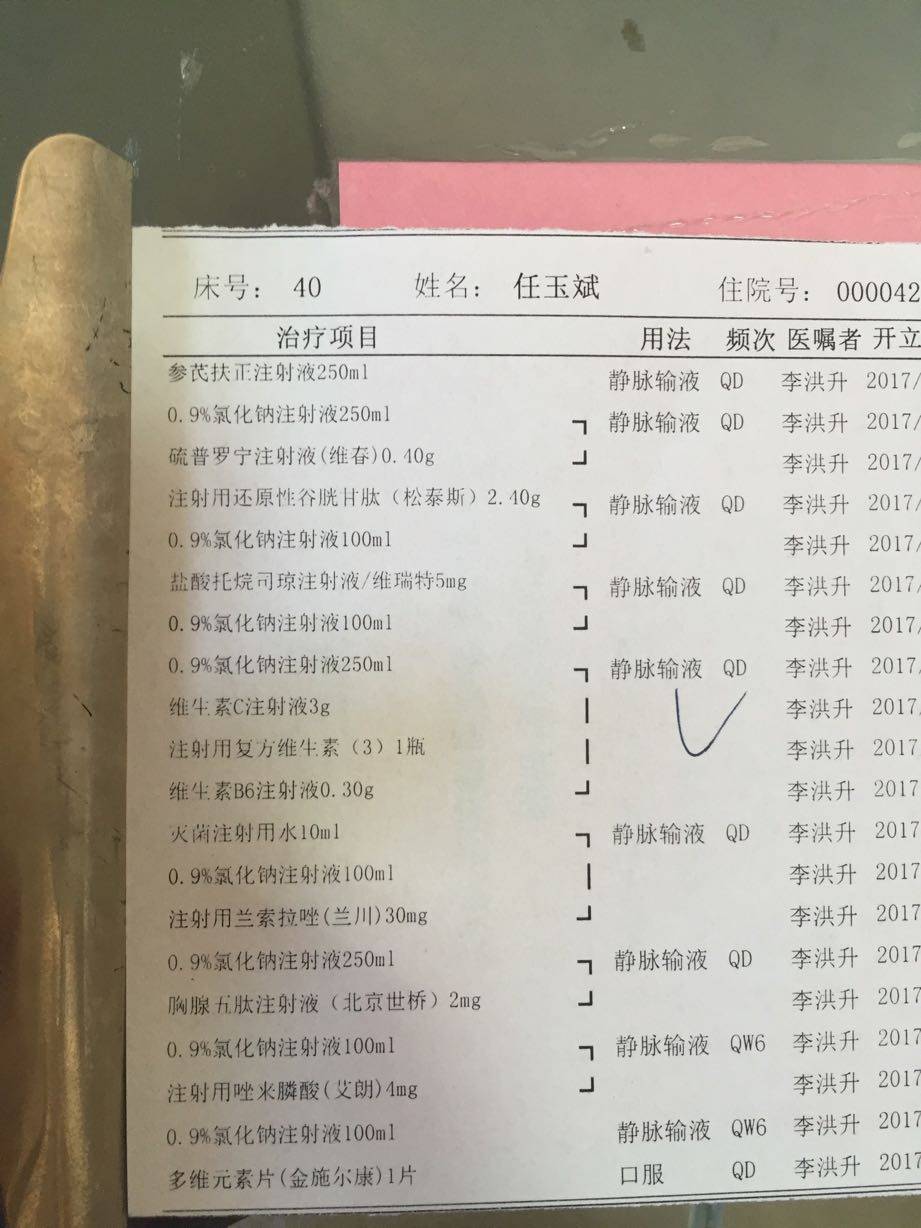 床号： 40 姓名： 任玉斌 住院号： 000042
治疗项目 用法 频次 医嘱者 开立
参芪扶正注射液250ml 静脉输液 QD 李洪升 2017/
0.9%氯化钠注射液250ml ┐ 静脉输液 QD 李洪升 2017/
硫普罗宁注射液(维春)0.40g ┘ 李洪升 2017/
注射用还原性谷胱甘肽（松泰斯）2.40g ┐ 静脉输液 QD 李洪升 2017/
0.9%氯化钠注射液100ml ┘ 李洪升 2017/
盐酸托烷司琼注射液/维瑞特5mg ┐ 静脉输液 QD 李洪升 2017/
0.9%氯化钠注射液100ml ┘ 李洪升 2017/
0.9%氯化钠注射液250ml ┐ 静脉输液 QD 李洪升 2017/
维生素C注射液3g │ 李洪升 2017/
注射用复方维生素（3）1瓶 │ 李洪升 2017
维生素B6注射液0.30g ┘ 李洪升 2017
灭菌注射用水10ml ┐ 静脉输液 QD 李洪升 2017
0.9%氯化钠注射液100ml │ 李洪升 2017
注射用兰索拉唑(兰川)30mg ┘ 李洪升 2017
0.9%氯化钠注射液250ml ┐ 静脉输液 QD 李洪升 2017
胸腺五肽注射液（北京世桥）2mg ┘ 李洪升 2017
0.9%氯化钠注射液100ml ┐ 静脉输液 QW6 李洪升 2017
注射用唑来膦酸(艾朗)4mg ┘ 李洪升 2017
0.9%氯化钠注射液100ml 静脉输液 QW6 李洪升 2017
多维元素片(金施尔康)1片 口服 QD 李洪升 2017